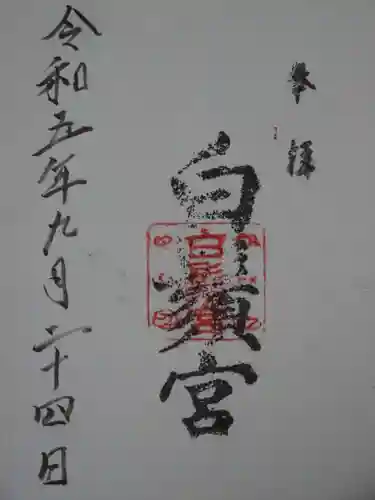 奉拝
白鬚宮
令和五年九月二十四日